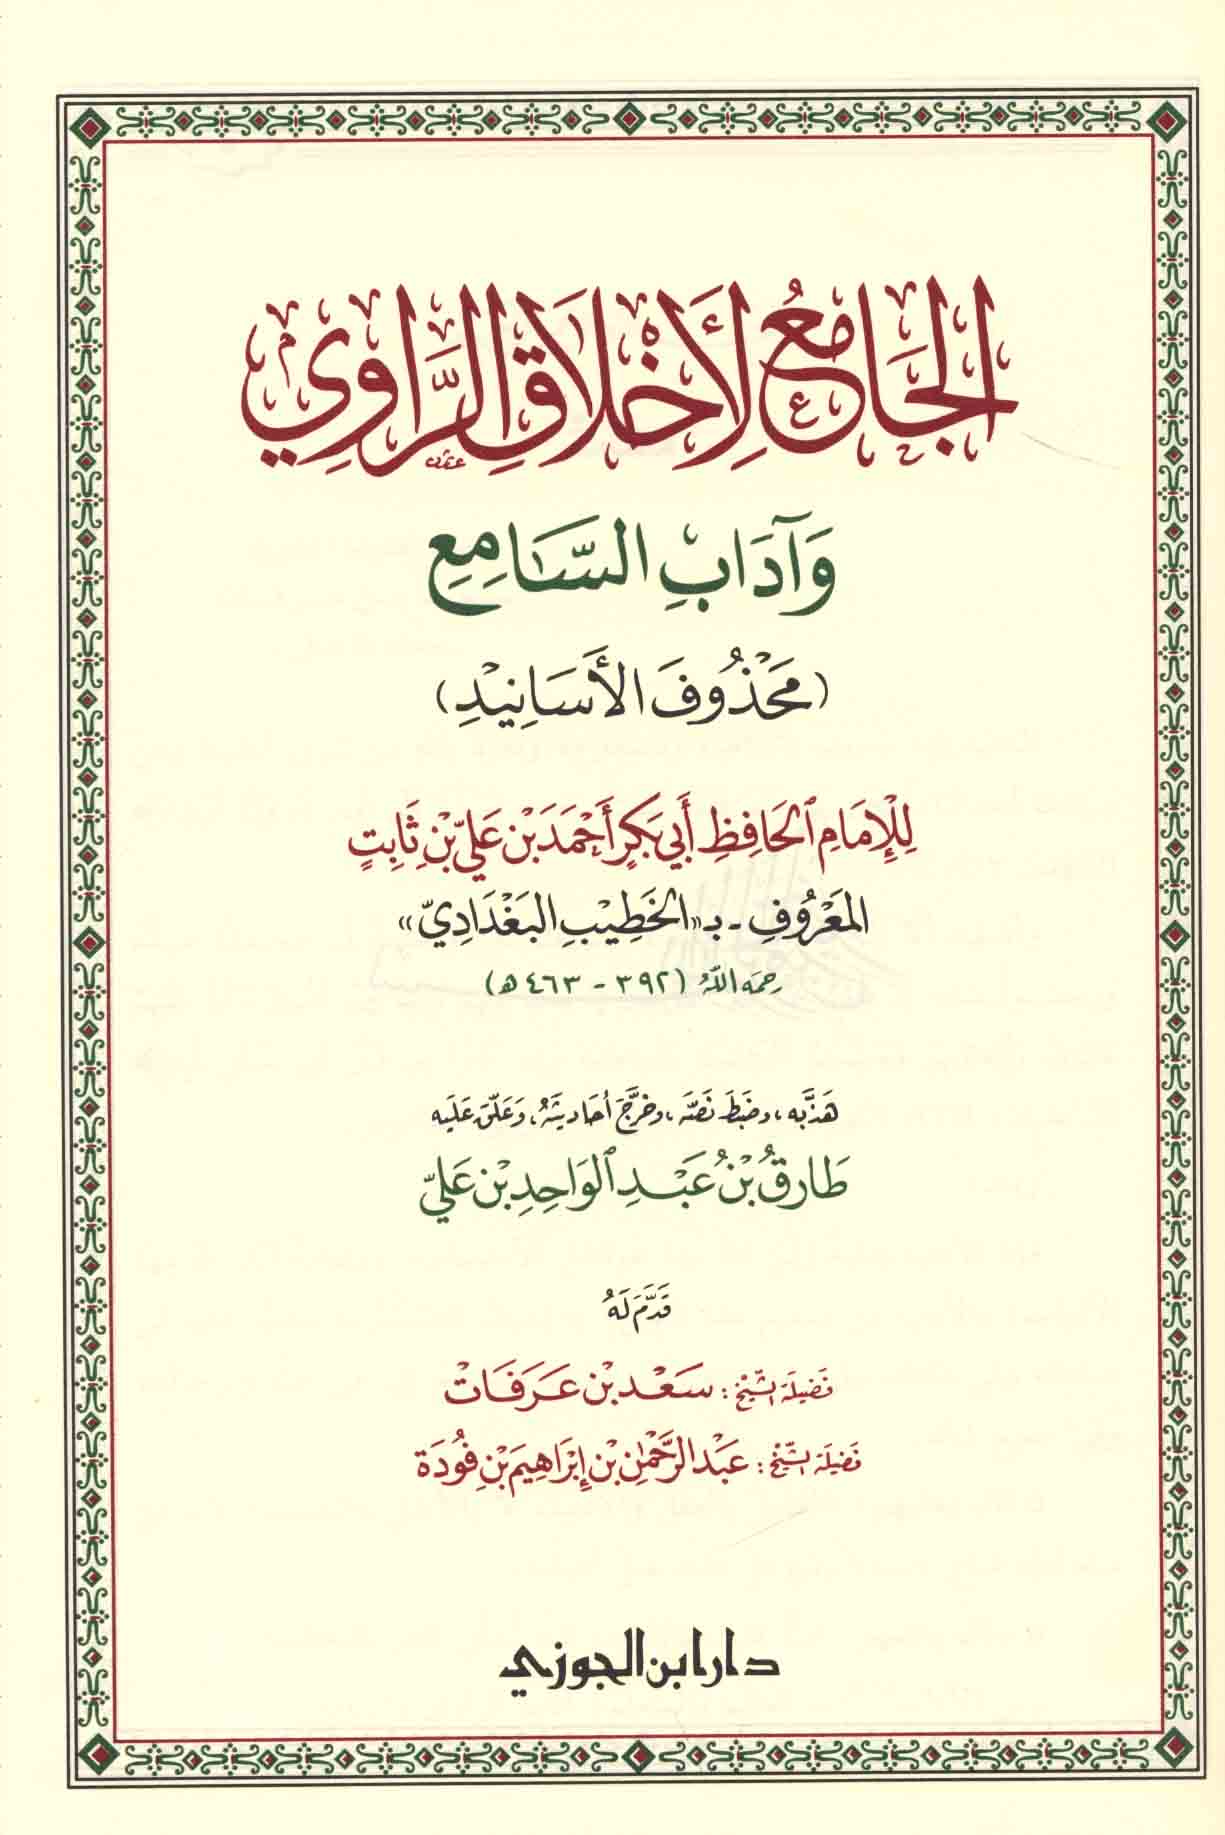 الجَامِعُ لِأَخْلَاقِ الرَّاوِي
وَآدَابِ السَّامِعِ
(مَحْذُوفَ الأَسَانِيْدِ)
لِلْإِمَامِ الحَافِظِ أَبِي بَكْرٍ أَحْمَدَ بْنِ عَلِيِّ بْنِ ثَابِتٍ
المَعْرُوفِ - بـ «الخَطِيْبِ البَغْدَادِيِّ»
رحمه اللّٰهُ (٣٩٢ - ٤٦٣ هـ)
هَذَّبَه، وضَبَطَ نَصَّه، وخَرَّجَ أحَاديثَهُ، وَعَلّقَ عَلَيه
طَارِقُ بْنُ عَبْدِ الوَاحِدِ بْنِ عَلِيّ
قَدَّمَ لَهُ
فَضِيلَة الشّيْخ : سَعْد بْن عَرَفَاتْ
فَضِيلَة الشّيْخ : عَبْد الرَّحْمٰنِ بْنِ إبْرَاهِيمَ بْنِ فُودَة
دار ابن الجوزي